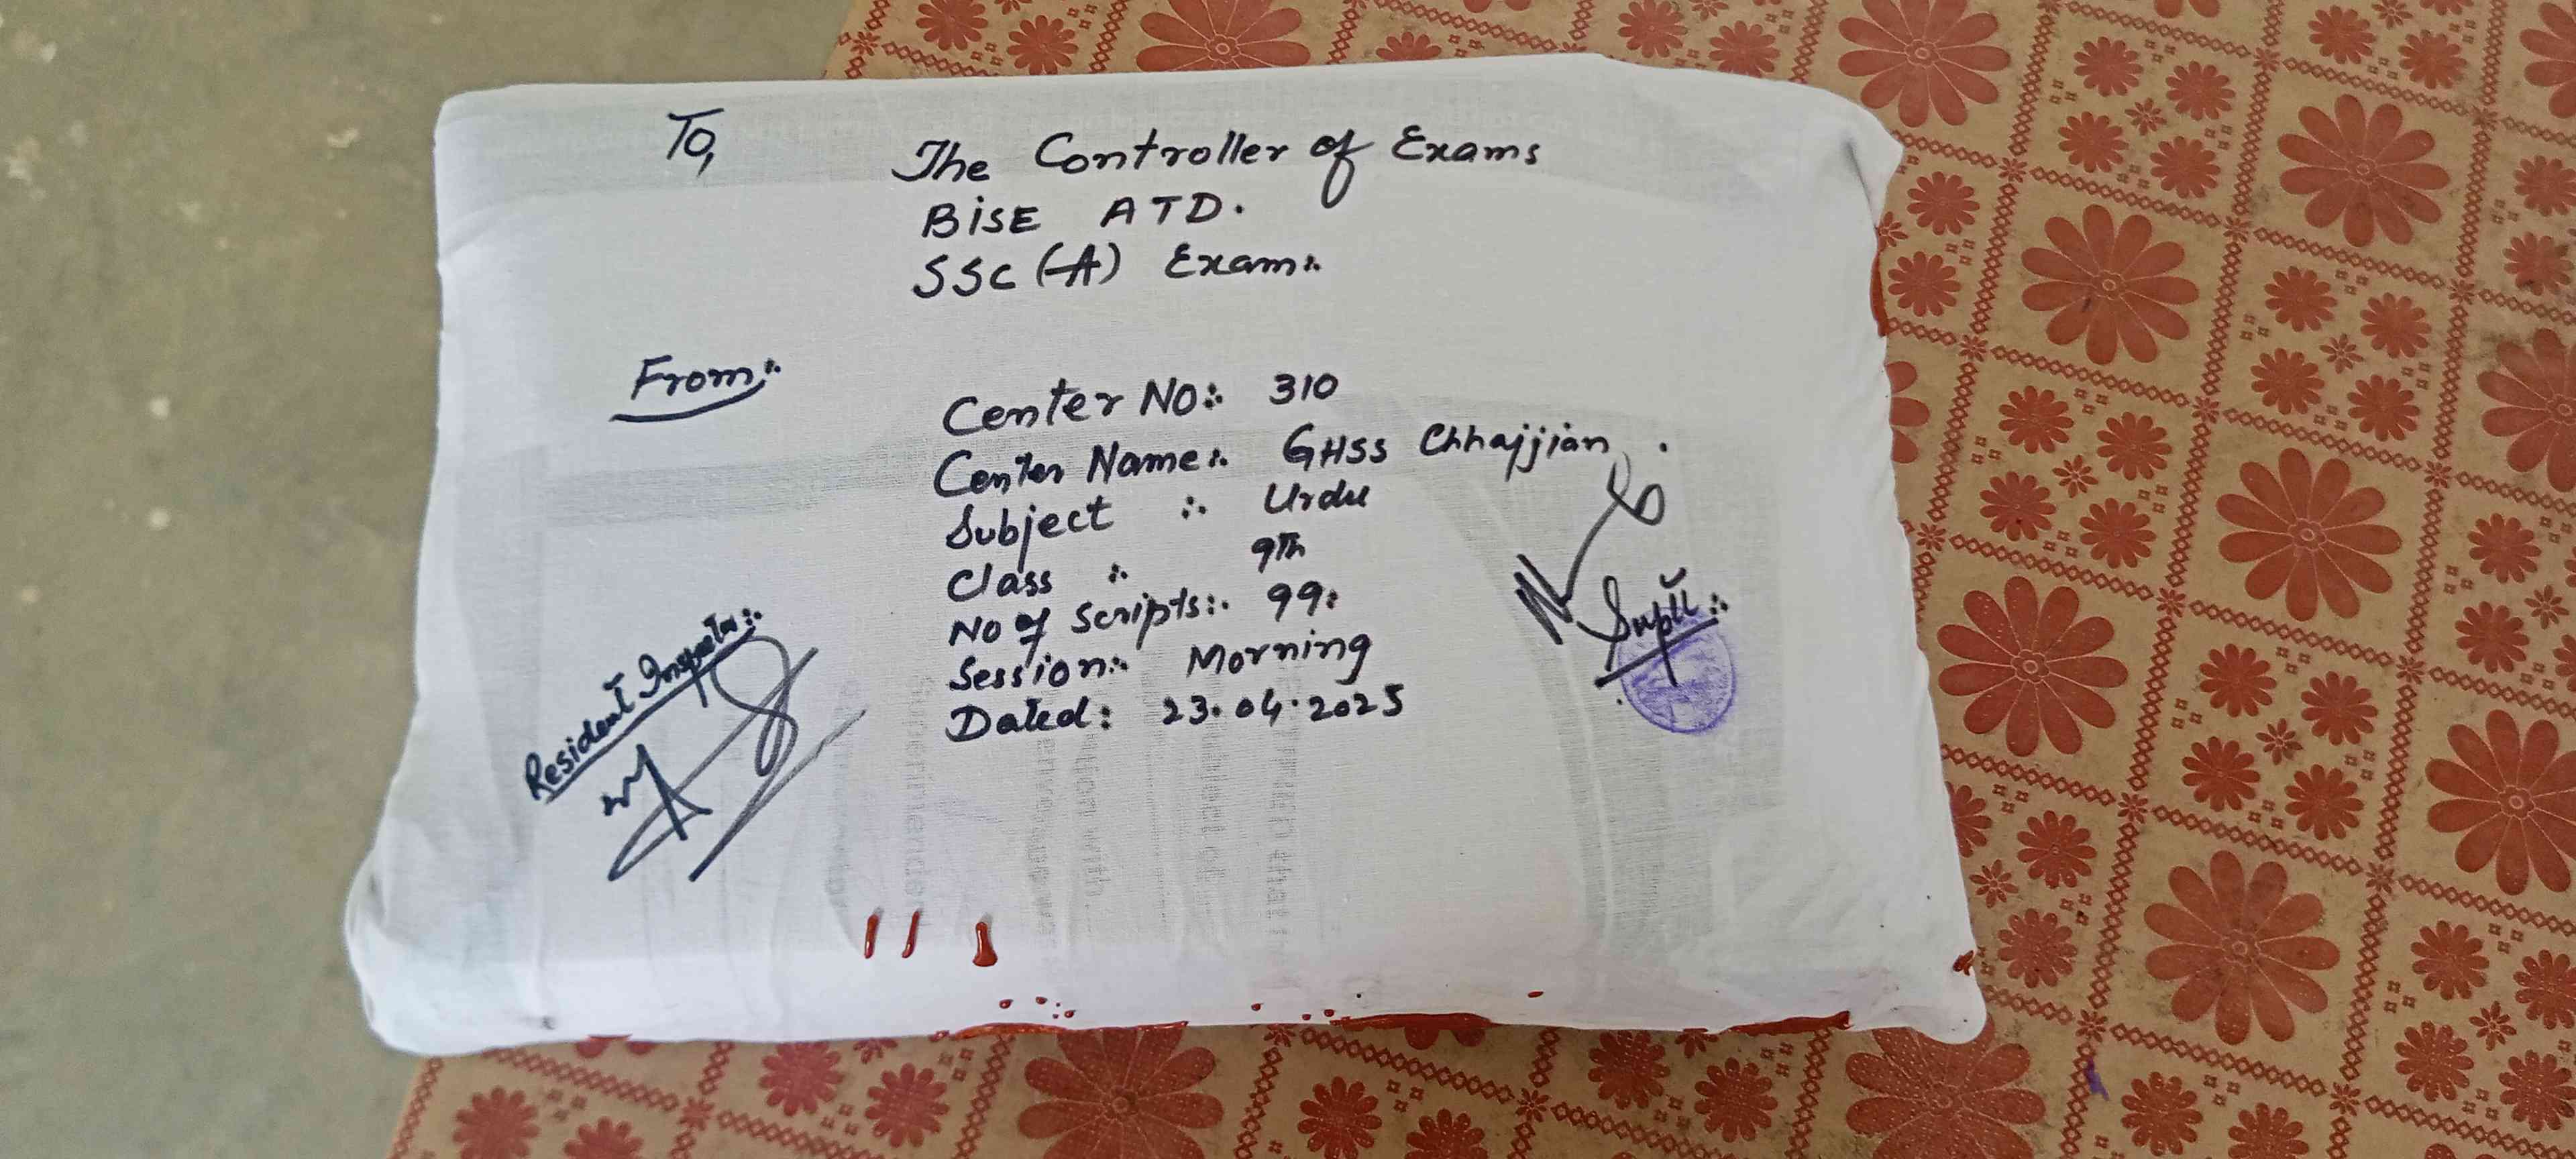 To,
The Controller of Exams
BISE ATD.
SSC (A) Exam:.
From:.
Center NO:. 310
Center Name:. GHSS Chhajjian.
Subject :. Urdu
Class :. 9Th
No of Scripts:. 99:
Session:. Morning
Dated: 23.04.2025
Resident Inspector:.
Supdt:.